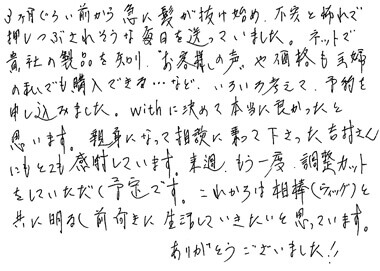 3ヶ月ぐらい前から急に髪が抜け始め、不安と怖れで
押しつぶされそうな毎日を送っていました。ネットで
貴社の製品を知り、"お客様の声"や価格も主婦
の私でも購入できる…など、いろいろ考えて、予約を
申し込みました。withに決めて本当に良かったと
思います。親身になって相談に乗って下さった吉村さん
にもとても感謝しています。来週、もう一度、調整カット
をしていただく予定です。これからは相棒(ウィッグ)と
共に明るく前向きに生活していきたいと思っています。
ありがとうございました!!